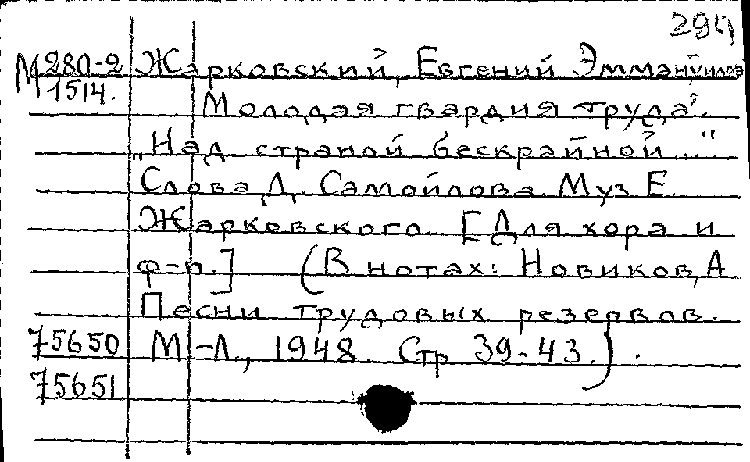 294
М280-2 Жарковский, Евгений Эммануилов
1514. Молодая гвардия труда.
„Над страной бескрайной..."
Слова Д. Самойлова Муз Е
Жарковского. [Для хора и
ф-п.] (В нотах: Новиков, А
Песни трудовых резервов.
75650 М-Л., 1948. Стр 39-43.).
75651